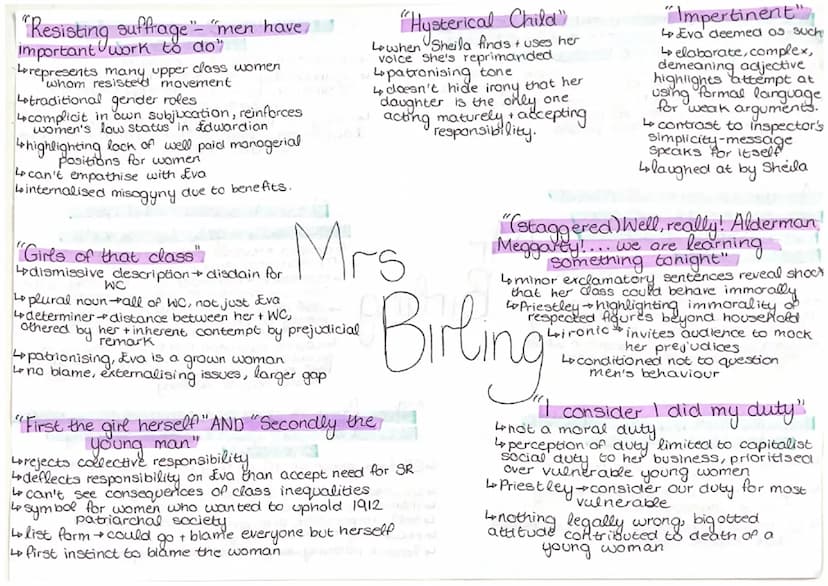 "Resisting suffrage" – "men have
important work to do"
↳represents many upper class women
whom resisted movement
↳traditional gender roles
↳complicit in own subjucation, reinforces
women's low status in Edwardian
↳highlighting lack of well paid managerial
positions for women
↳can't empathise with Eva
↳internalised misogyny due to benefits.
"Hysterical Child"
↳when Sheila finds + uses her
voice she's reprimanded
↳patronising tone
↳doesn't hide irony that her
daughter is the only one
acting maturely + accepting
responsibility.
"Impertinent"
↳Eva deemed as such
↳elaborate, complex,
demeaning adjective
highlights attempt at
using formal language
for weak arguments.
↳contrast to inspector's
simplicity-message
speaks for itself
↳laughed at by Sheila
"Girls of that class"
↳dismissive description → disdain for
WC
↳plural noun → all of WC, not just Eva
↳determiner → distance between her + WC,
othered by her + inherent contempt by prejudicial
remark
↳patrionising, Eva is a grown woman
↳no blame, externalising issues, larger gap
Mrs
Birling
"(staggered) Well, really! Alderman
Meggarty!.... we are learning
something tonight"
↳minor exclamatory sentences reveal shock
that her class could behave immorally
↳Priestley → highlighting immorality of
respected figures beyond household
↳ironic → invites audience to mock
her prejudices
↳conditioned not to question
men's behaviour
"First the girl herself" AND "Secondly the
young man"
↳rejects collective responsibility
↳deflects responsibility on Eva than accept need for SR
↳can't see consequences of class inequalities
↳symbol for women who wanted to uphold 1912
patriarchal society
↳list form → could go + blame everyone but herself
↳first instinct to blame the woman
"I consider I did my duty"
↳not a moral duty
↳perception of duty limited to capitalist
social duty to her business, prioritised
over vulnerable young women
↳Priestley → consider our duty for most
vulnerable
↳nothing legally wrong, bigotted
attitude contributed to death of a
young woman